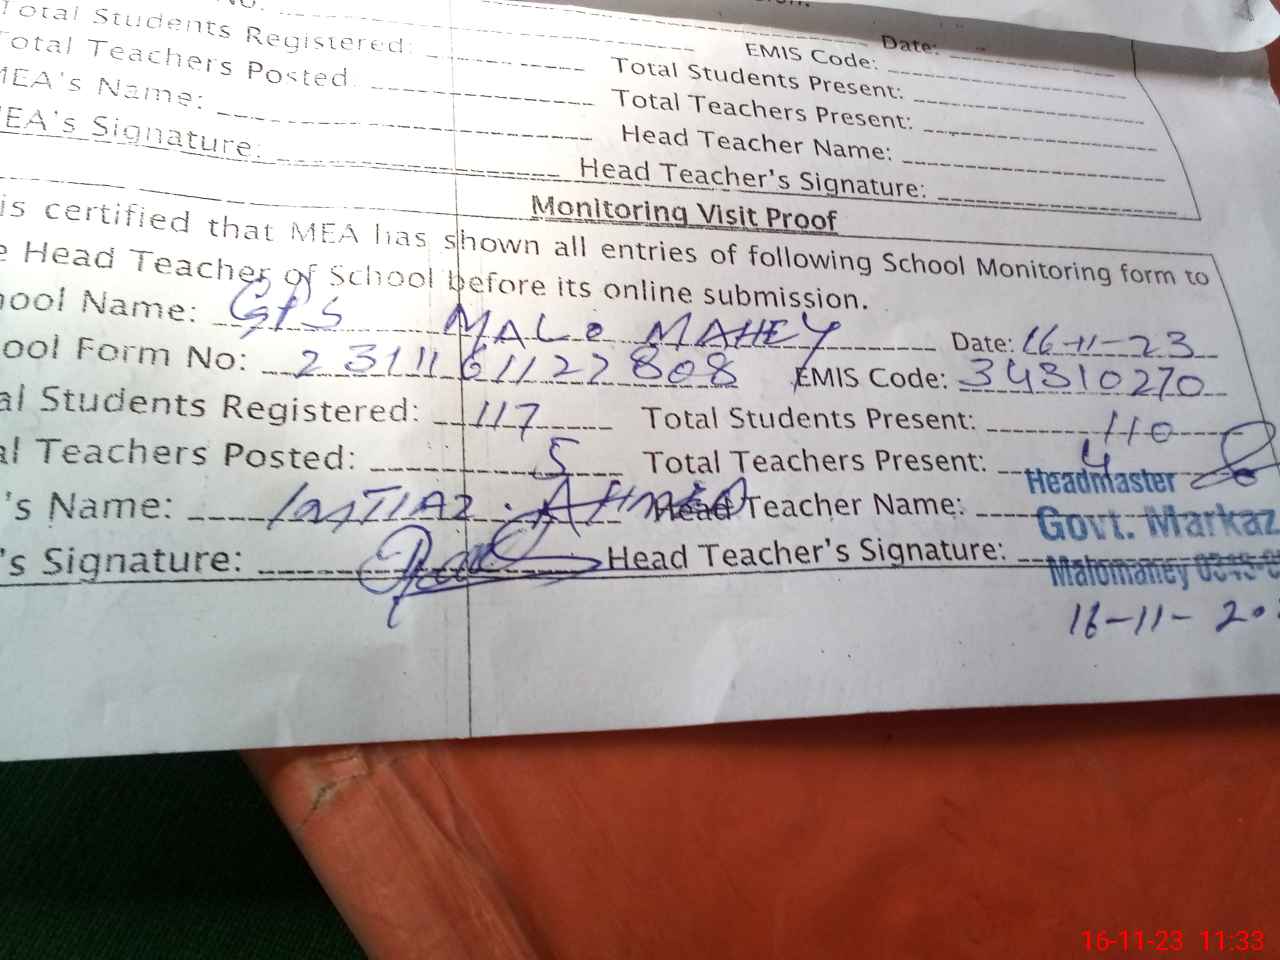 Total Students Registered: EMIS Code: Date:
Total Teachers Posted Total Students Present:
MEA's Name: Total Teachers Present:
MEA's Signature: Head Teacher Name:
Head Teacher's Signature:
Monitoring Visit Proof
is certified that MEA has shown all entries of following School Monitoring form to
e Head Teacher of School before its online submission.
hool Name: GPS MALO MAHEY Date: 16-11-23
ool Form No: 2311161122808 EMIS Code: 34310270
al Students Registered: 117 Total Students Present: 110
al Teachers Posted: 5 Total Teachers Present: 4
's Name: IMTIAZ AHMED Head Teacher Name: Headmaster
's Signature: Head Teacher's Signature: Govt. Markaz
Malomahey 0345-
16-11-20
16-11-23 11:33